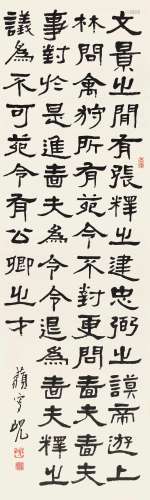 文景之間有張釋之建忠弼之謨帝遊上
林問禽狩所有苑令不對更問嗇夫嗇夫
事對於是進嗇夫為令令退為嗇夫釋之
議為不可苑令有公卿之才
蘇宇